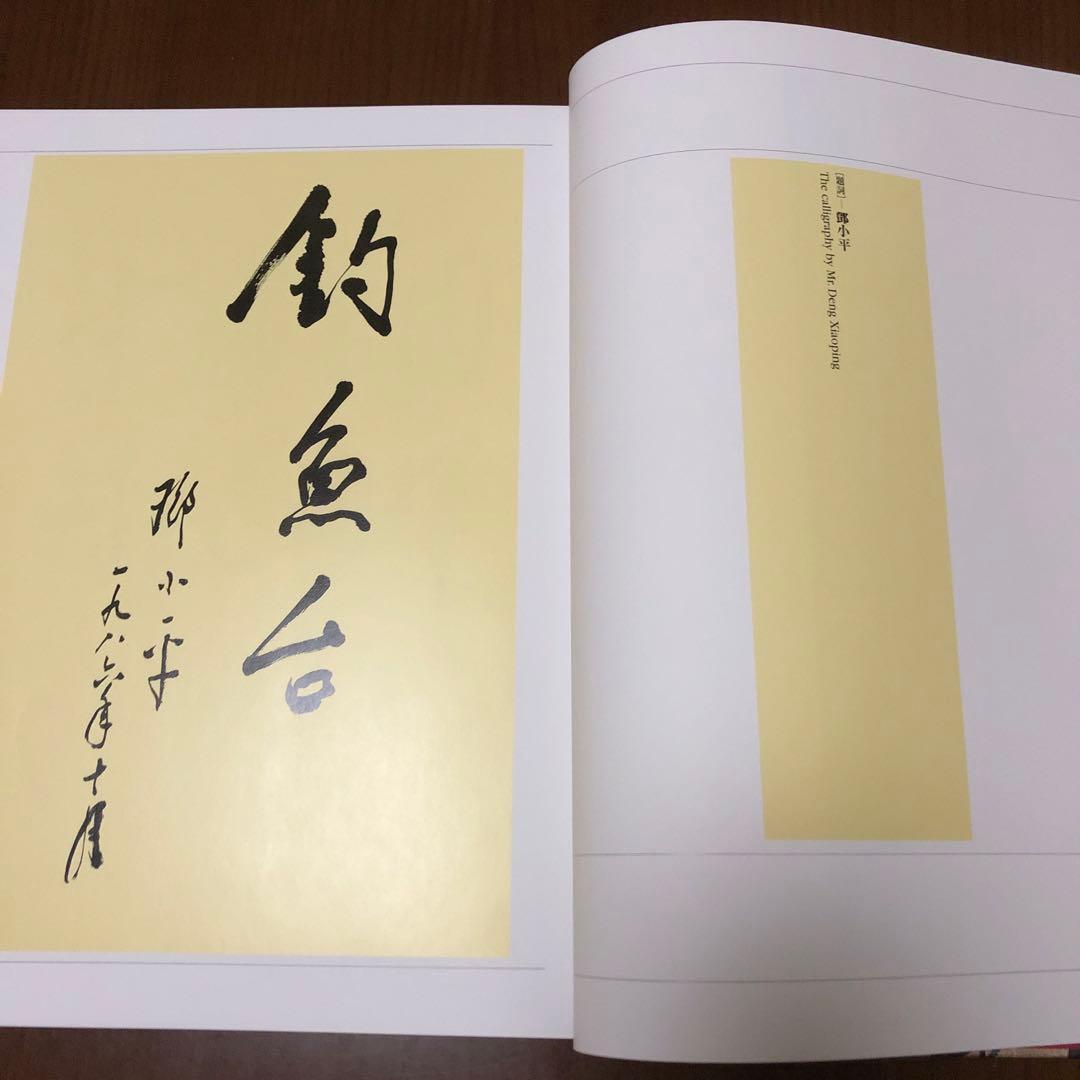 釣魚台
鄧小平
一九八六年十月
[題詞]—鄧小平
The calligraphy by Mr. Deng Xiaoping